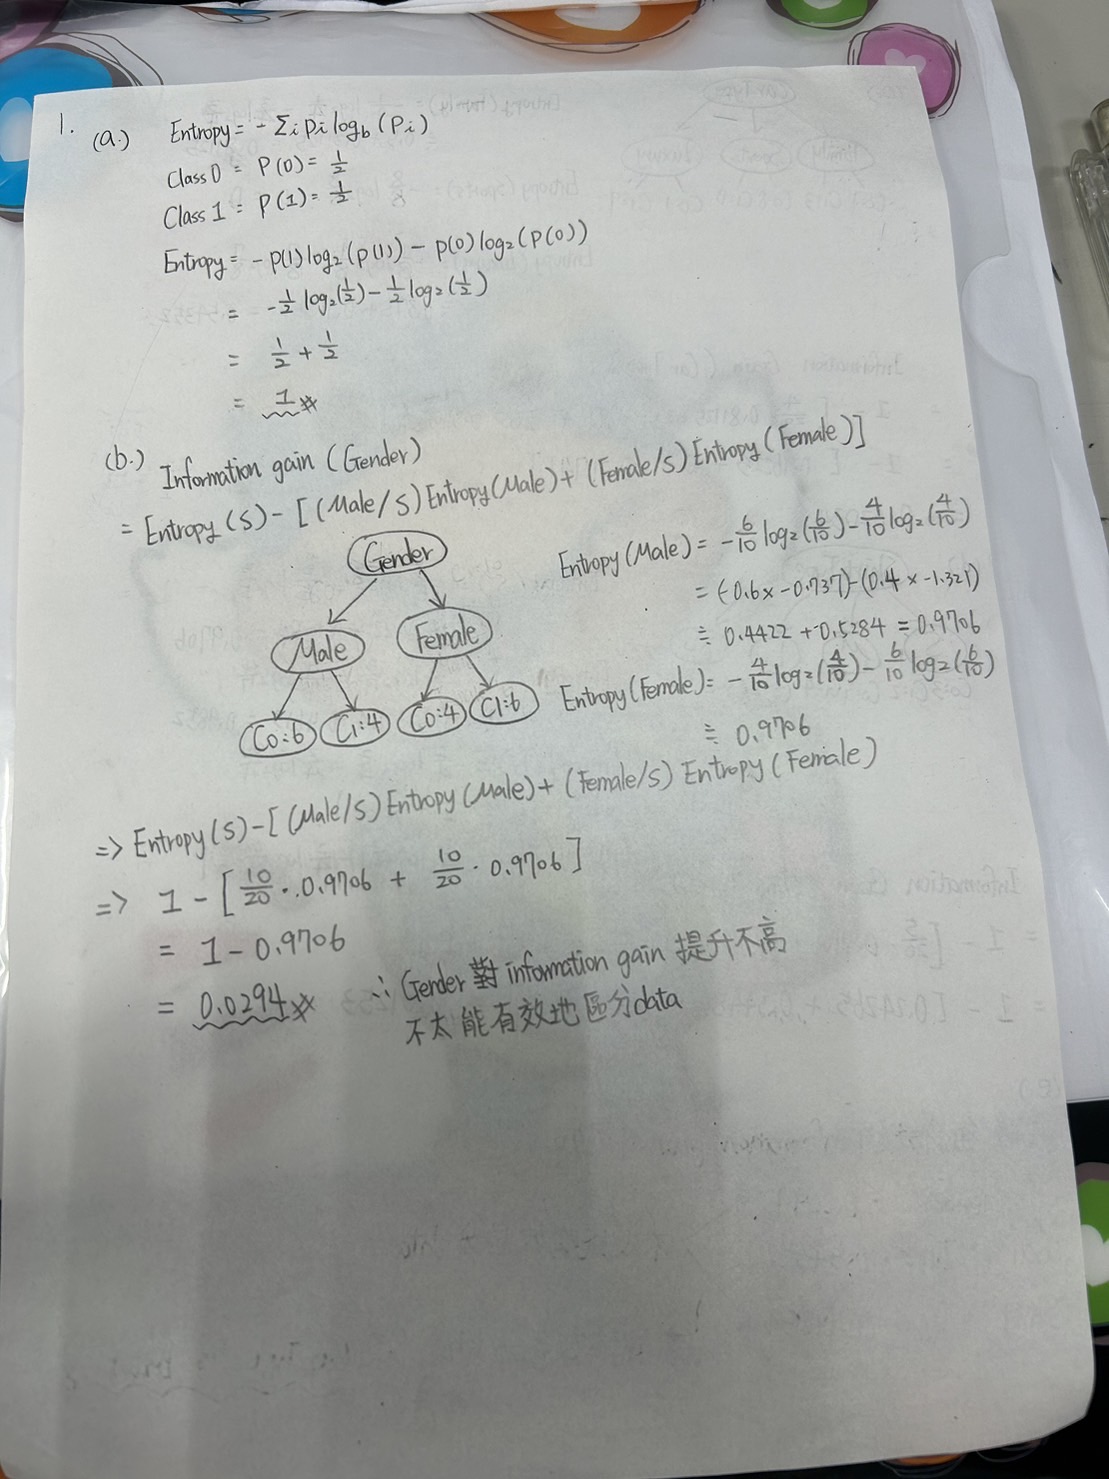 1. (a.) Entropy = - Σi pi logb (Pi)
Class 0 = P(0) = 1/2
Class 1 = P(1) = 1/2
Entropy = - P(1) log2 (P(1)) - P(0) log2 (P(0))
= - 1/2 log2 (1/2) - 1/2 log2 (1/2)
= 1/2 + 1/2
= 1 #
(b.) Information gain (Gender)
= Entropy (S) - [(Male/S) Entropy (Male) + (Female/S) Entropy (Female)]
Gender
Male
Female
C0:6
C1:4
C0:4
C1:6
Entropy (Male) = - 6/10 log2 (6/10) - 4/10 log2 (4/10)
= (-0.6 x -0.737) - (0.4 x -1.321)
≒ 0.4422 + 0.5284 = 0.9706
Entropy (Female) = - 4/10 log2 (4/10) - 6/10 log2 (6/10)
≒ 0.9706
=> Entropy (S) - [(Male/S) Entropy (Male) + (Female/S) Entropy (Female)
=> 1 - [10/20 · 0.9706 + 10/20 · 0.9706]
= 1 - 0.9706
= 0.0294 #
∴ Gender 對 information gain 提升不高
不太能有效地區分data